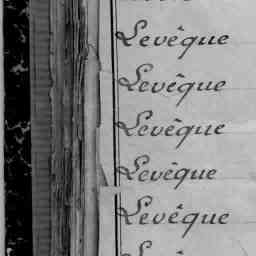 Levêque
Levêque
Levêque
Levêque
Levêque